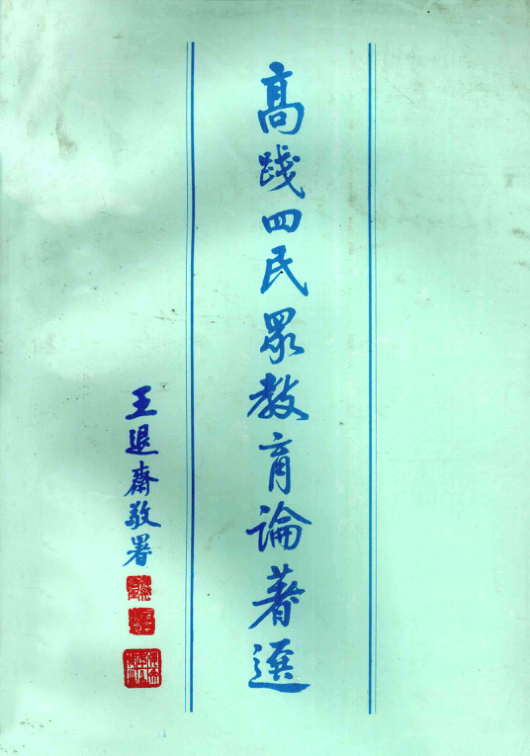 高踐四民眾教育論著選
王退齋敬署